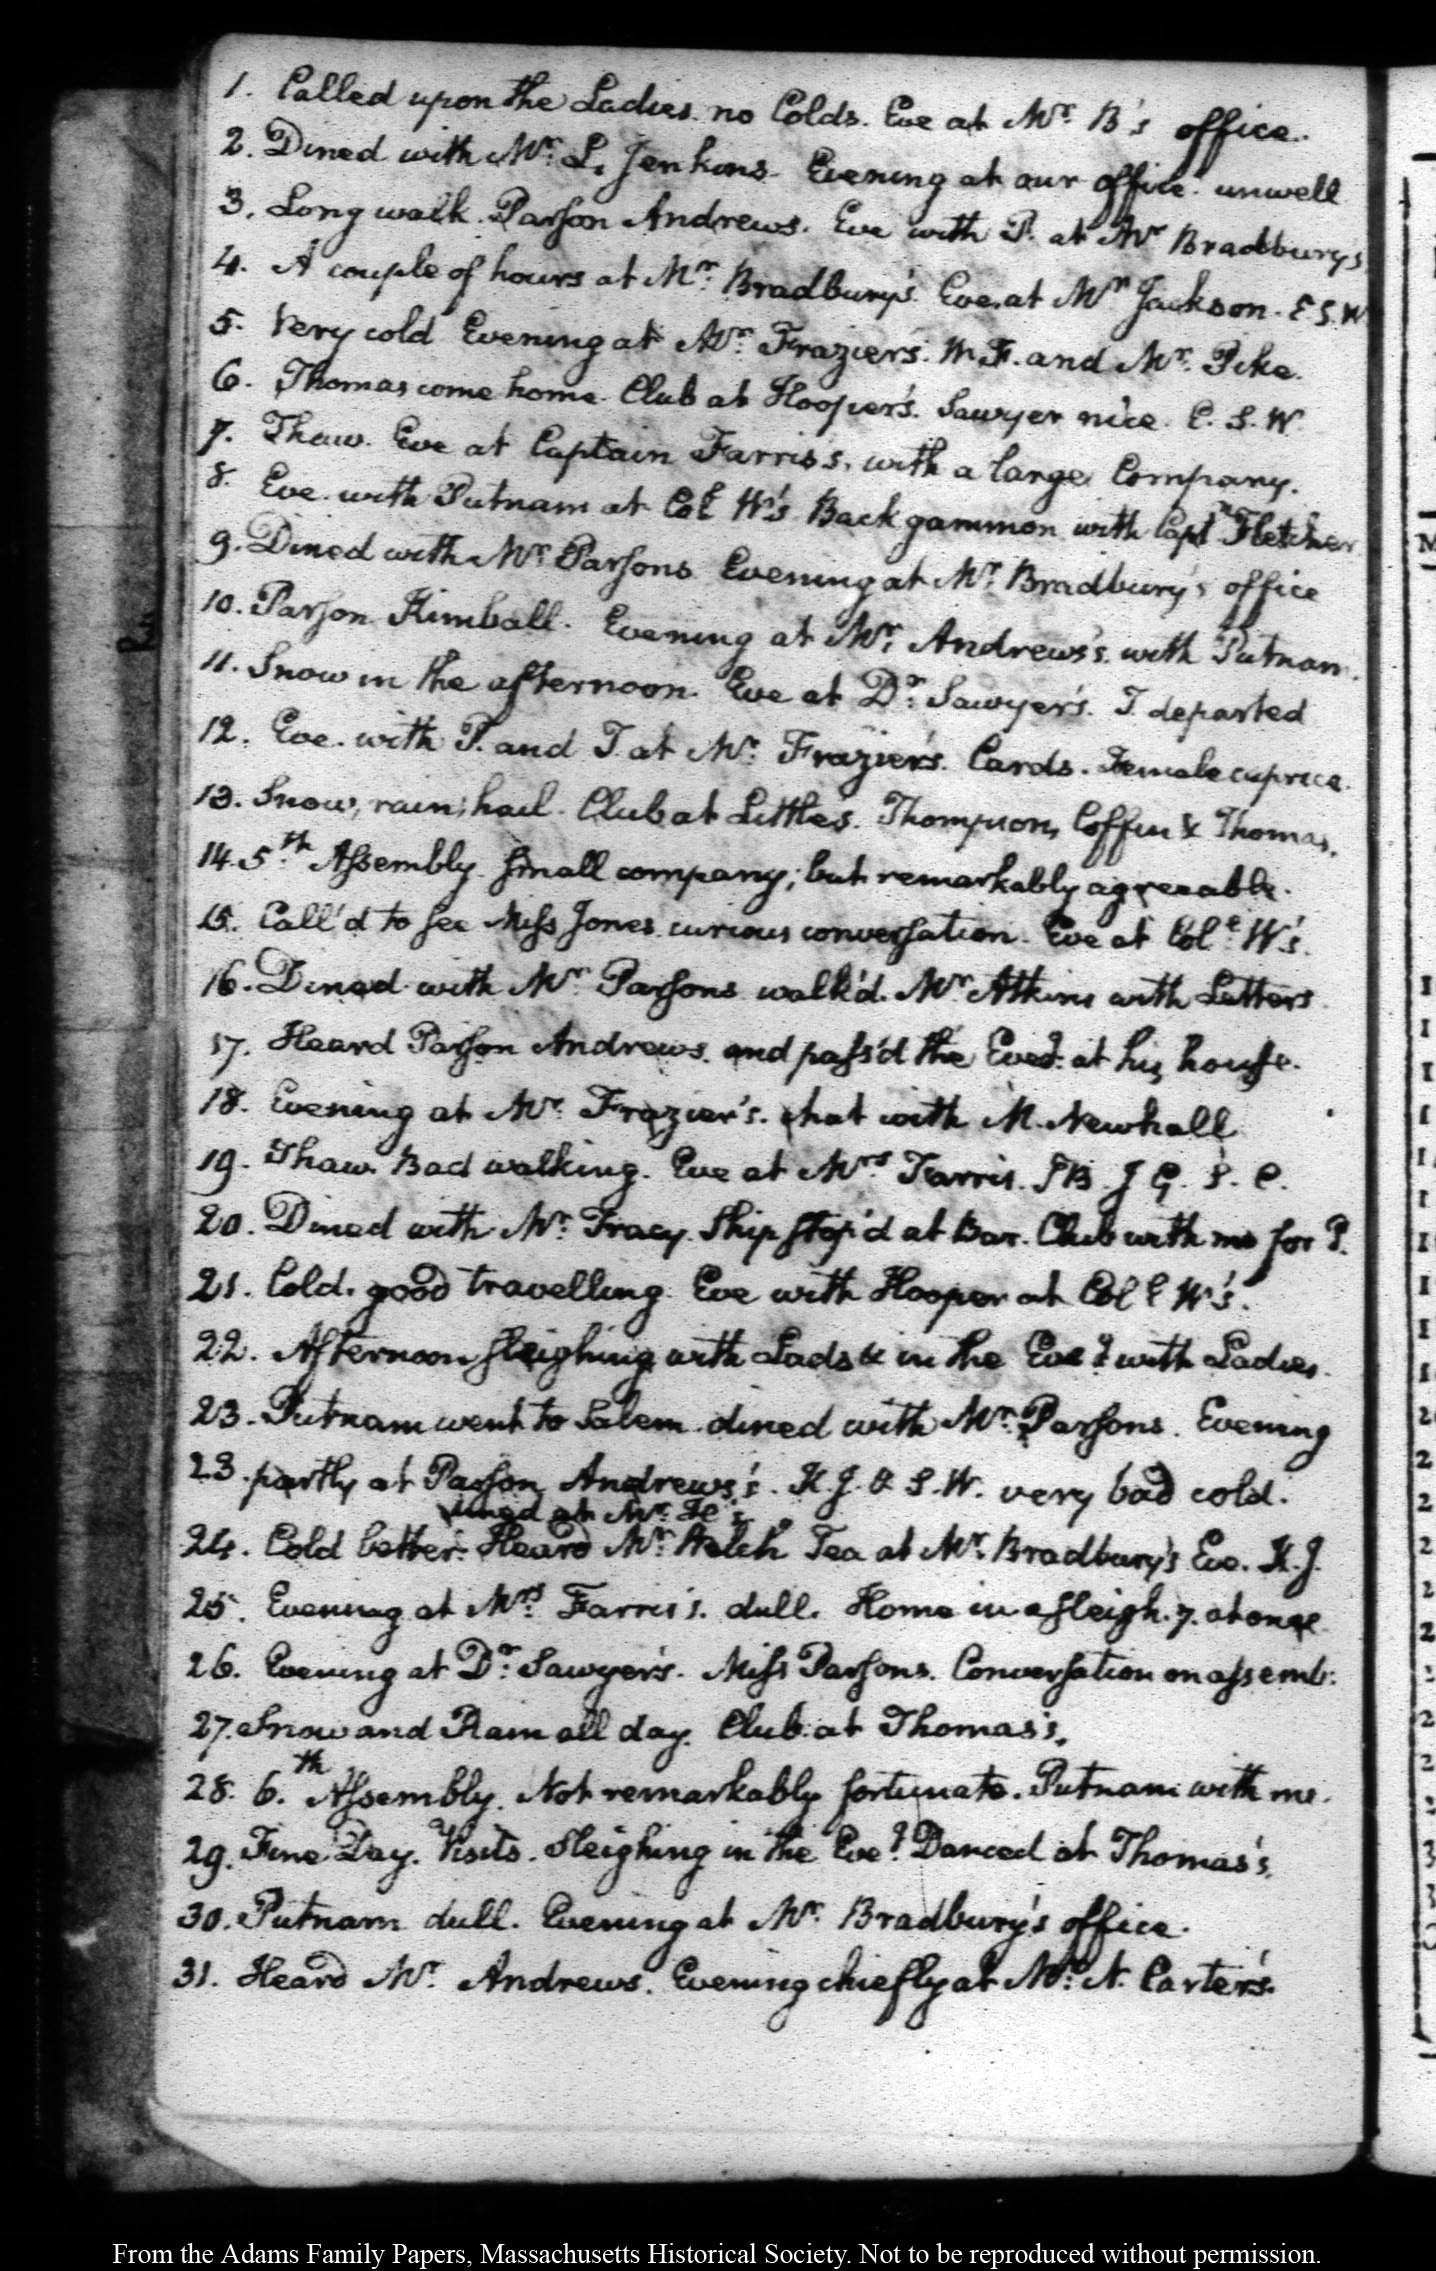 1. Called upon the Ladies no Colds. Eve at Mr. B's office.
2. Dined with Mr. L. Jenkins. Evening at our office. unwell
3. Long walk. Parson Andrews. Eve with P. at Mr Bradbury's
4. A couple of hours at Mr. Bradbury's. Eve. at Mr Jackson. E S. W
5. Very cold Evening at Mr. Frazier's. M F. and Mr. Pike.
6. Thomas come home. Club at Hooper's. Sawyer nice. E. S. W.
7. Thaw. Eve at Captain Farris's, with a large Company.
8. Eve. with Putnam at Col. W's Back gammon with Capt Fletcher
9. Dined with Mr. Parsons Evening at Mr. Bradbury's office
10. Parson Kimball. Evening at Mr. Andrews's. with Putnam.
11. Snow in the afternoon. Eve at Dr. Sawyer's. T. departed
12. Eve. with P. and T. at Mr. Frazier's. Cards. Female caprice.
13. Snow, rain, hail. Club at Little's. Thompson, Coffin & Thomas.
14. 5th. Assembly. small company; but remarkably agreeable.
15. Call'd to see Miss Jones. curious conversation. Eve at Col. W's.
16. Dined with Mr Parsons walk'd. Mr. Atkins with Letters
17. Heard Parson Andrews. and pass'd the Eveg. at his house.
18. Evening at Mr. Frazier's. chat with M. Newhall
19. Thaw. Bad walking. Eve at Mrs Farris. J G. S. C.
20. Dined with Mr. Tracy. Ship stop'd at Bar. Club with me for P.
21. Cold. good travelling. Eve with Hooper at Col. W's.
22. Afternoon sleighing with Lads & in the Eveg. with Ladies.
23. Putnam went to Salem. dined with Mr. Parsons. Evening
23. partly at Parson Andrews's. K. J. & S. W. very bad cold.
dined at Mr. H's.
24. Cold better. Heard Mr. Welch Tea at Mr. Bradbury's Eve. K. J.
25. Evening at Mrs. Farris's. dull. Home in a sleigh. 7. at once
26. Evening at Dr. Sawyer's. Miss Parsons. Conversation on assemb:
27. Snow and Rain all day. Club at Thomas's.
28. 6.th Assembly. Not remarkably fortunate. Putnam with me.
29. Fine Day. Visits. Sleighing in the Eveg. Danced at Thomas's.
30. Putnam dull. Evening at Mr. Bradbury's office.
31. Heard Mr. Andrews. Evening chiefly at Mr. N. Carter's.
From the Adams Family Papers, Massachusetts Historical Society. Not to be reproduced without permission.